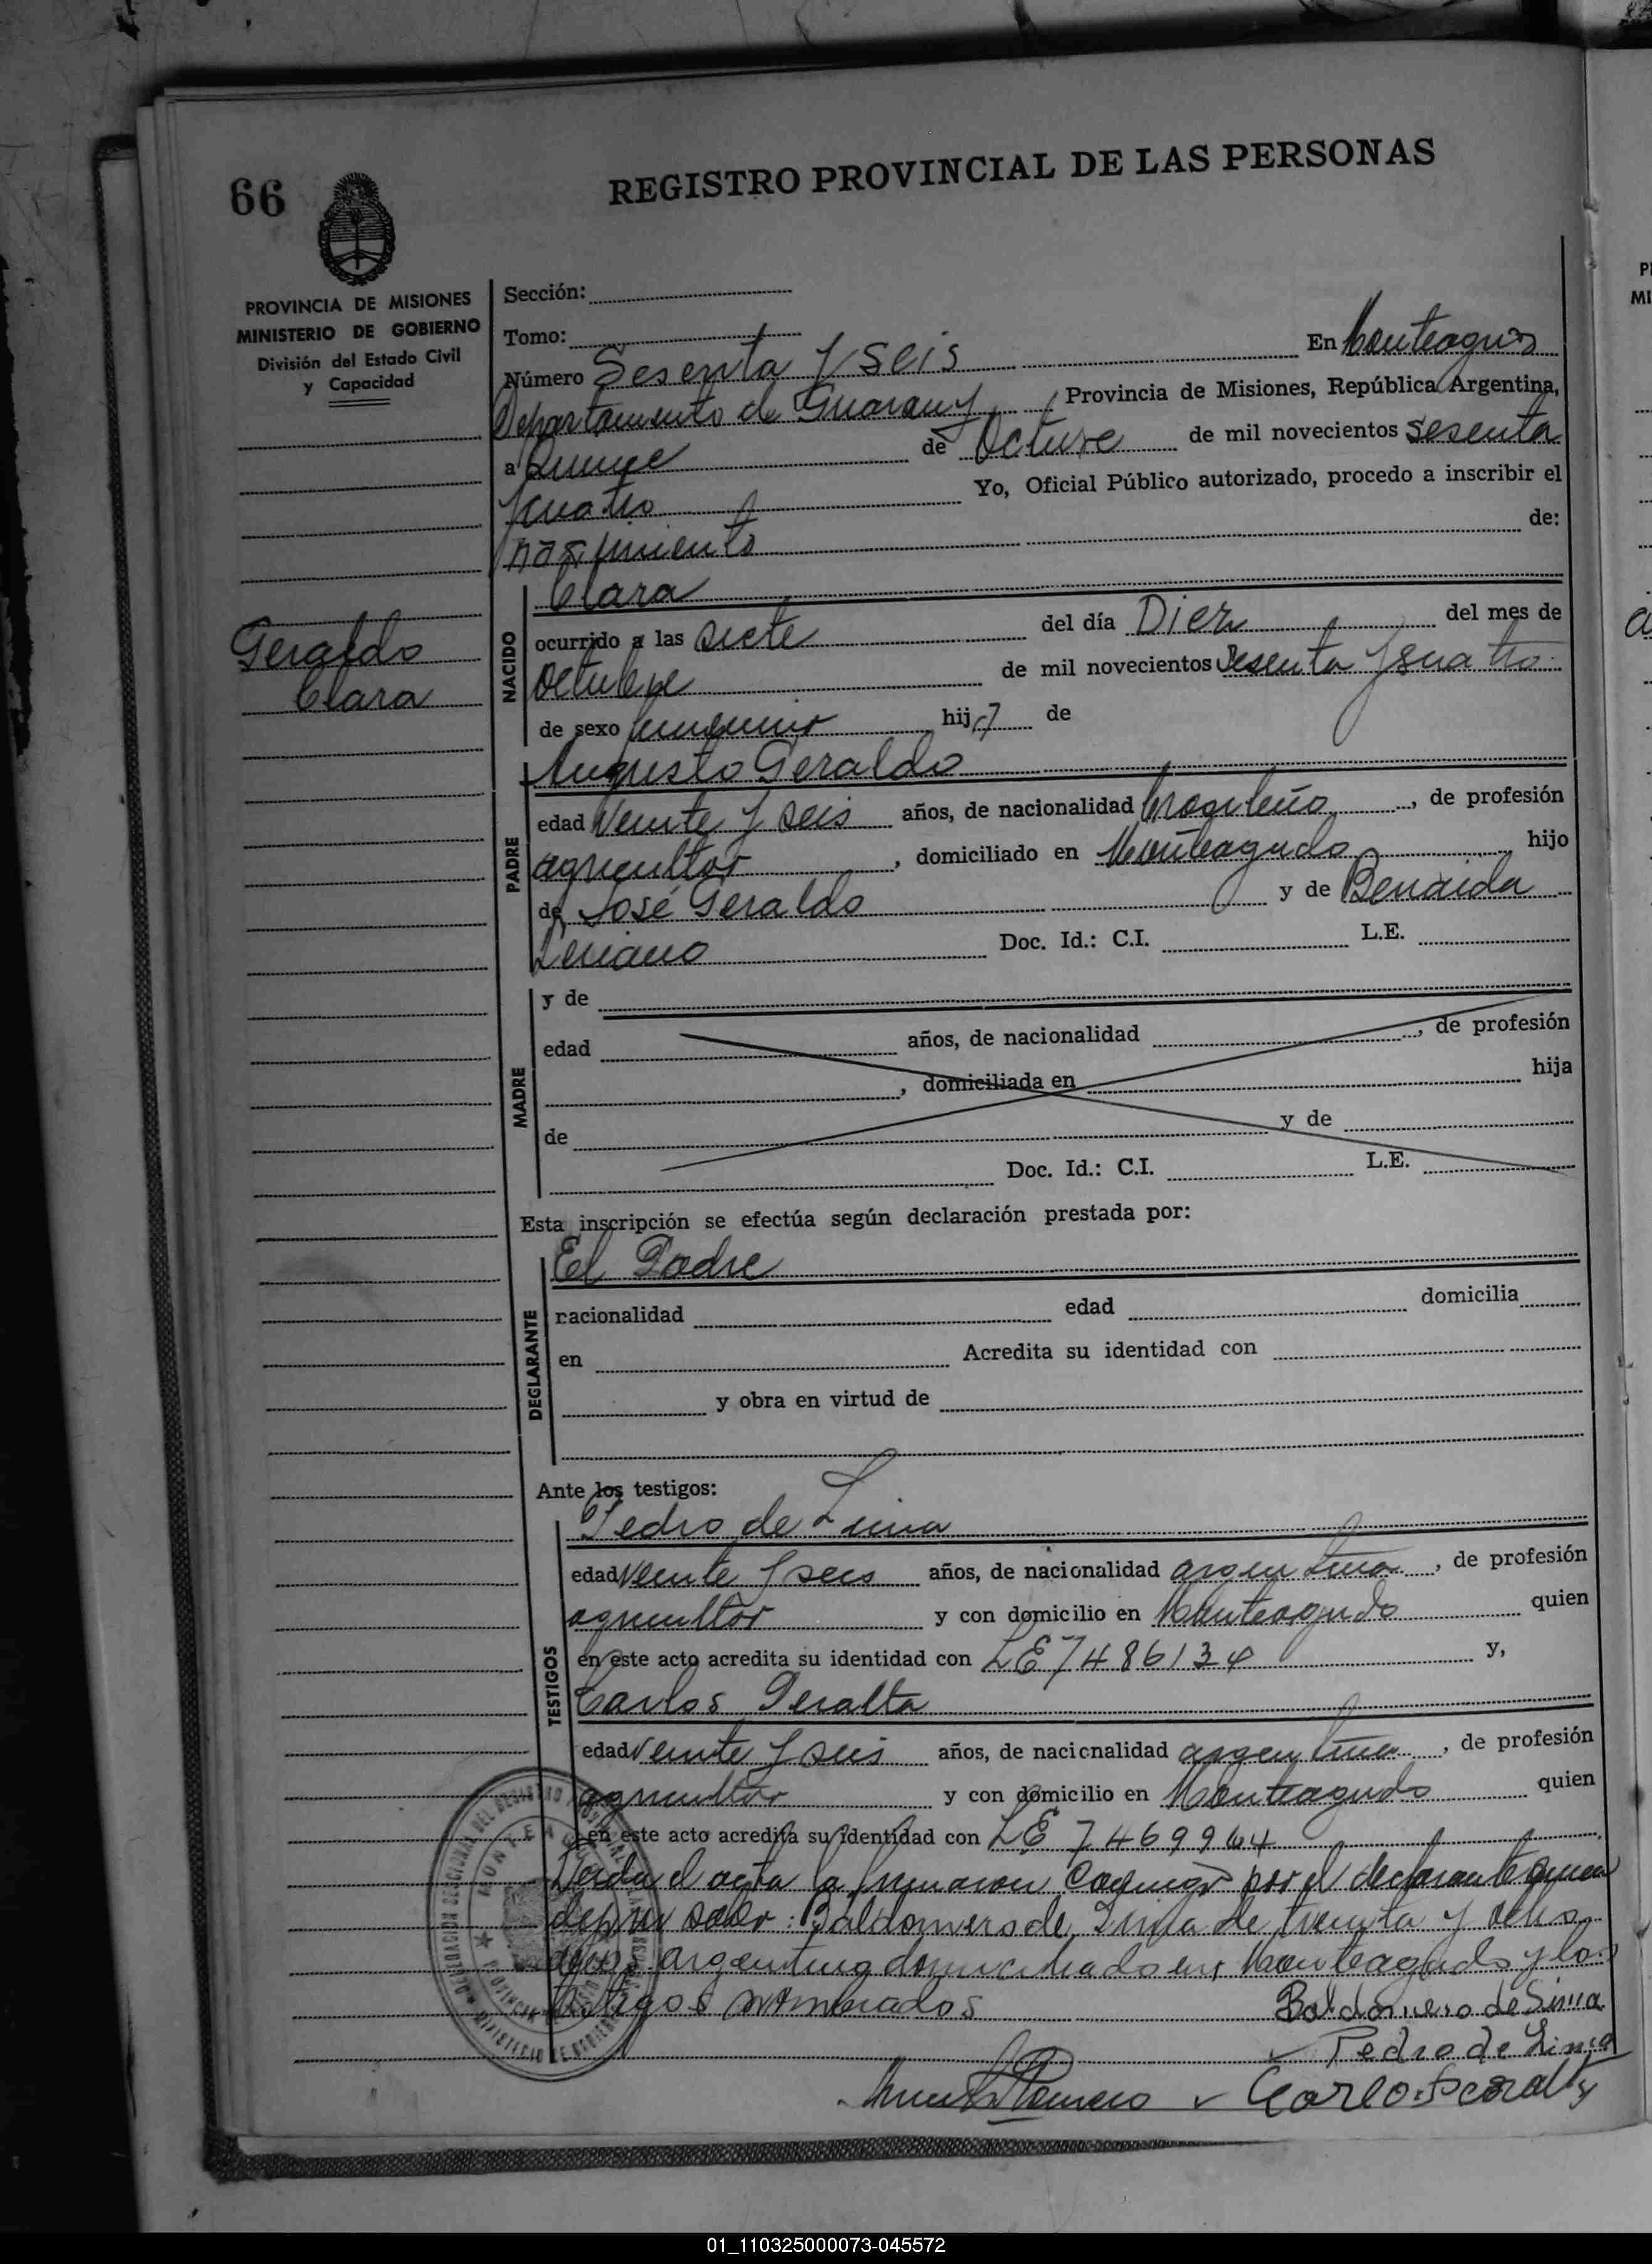 66
REGISTRO PROVINCIAL DE LAS PERSONAS
PROVINCIA DE MISIONES
MINISTERIO DE GOBIERNO
División del Estado Civil
y Capacidad
Geraldo
Clara
Sección:
Tomo:
Número Sesenta y seis En Monteagudo
Departamento de Guarany, Provincia de Misiones, República Argentina,
a Quince de Octubre de mil novecientos sesenta
y cuatro Yo, Oficial Público autorizado, procedo a inscribir el
nacimiento de:
NACIDO
Clara
ocurrido a las siete del día Diez del mes de
Octubre de mil novecientos sesenta y cuatro
de sexo femenino hija de
PADRE
Augusto Geraldo
edad Veinte y seis años, de nacionalidad brasileño, de profesión
agricultor, domiciliado en Monteagudo hijo
de José Geraldo y de Benaida
Doc. Id.: C.I. L.E.
MADRE
y de
edad años, de nacionalidad , de profesión
, domiciliada en hija
de y de
Doc. Id.: C.I. L.E.
Esta inscripción se efectúa según declaración prestada por:
DECLARANTE
El Padre
nacionalidad edad domicilia
en Acredita su identidad con
y obra en virtud de
Ante los testigos:
TESTIGOS
Pedro de Lima
edad veinte y seis años, de nacionalidad argentina, de profesión
agricultor y con domicilio en Monteagudo quien
en este acto acredita su identidad con LE 7486134 y,
Carlos Peralta
edad veinte y seis años, de nacionalidad argentina, de profesión
agricultor y con domicilio en Monteagudo quien
en este acto acredita su identidad con LE 7469964
Leida el acta la firmaron conmigo por el declarante quien
dijo no saber: Baldomero de Lima de treinta y ocho
años argentino domiciliado en Monteagudo y los
testigos nombrados
Baldomero de Lima
Pedro de Lima
Romero Carlos Peralta
01_110325000073-045572